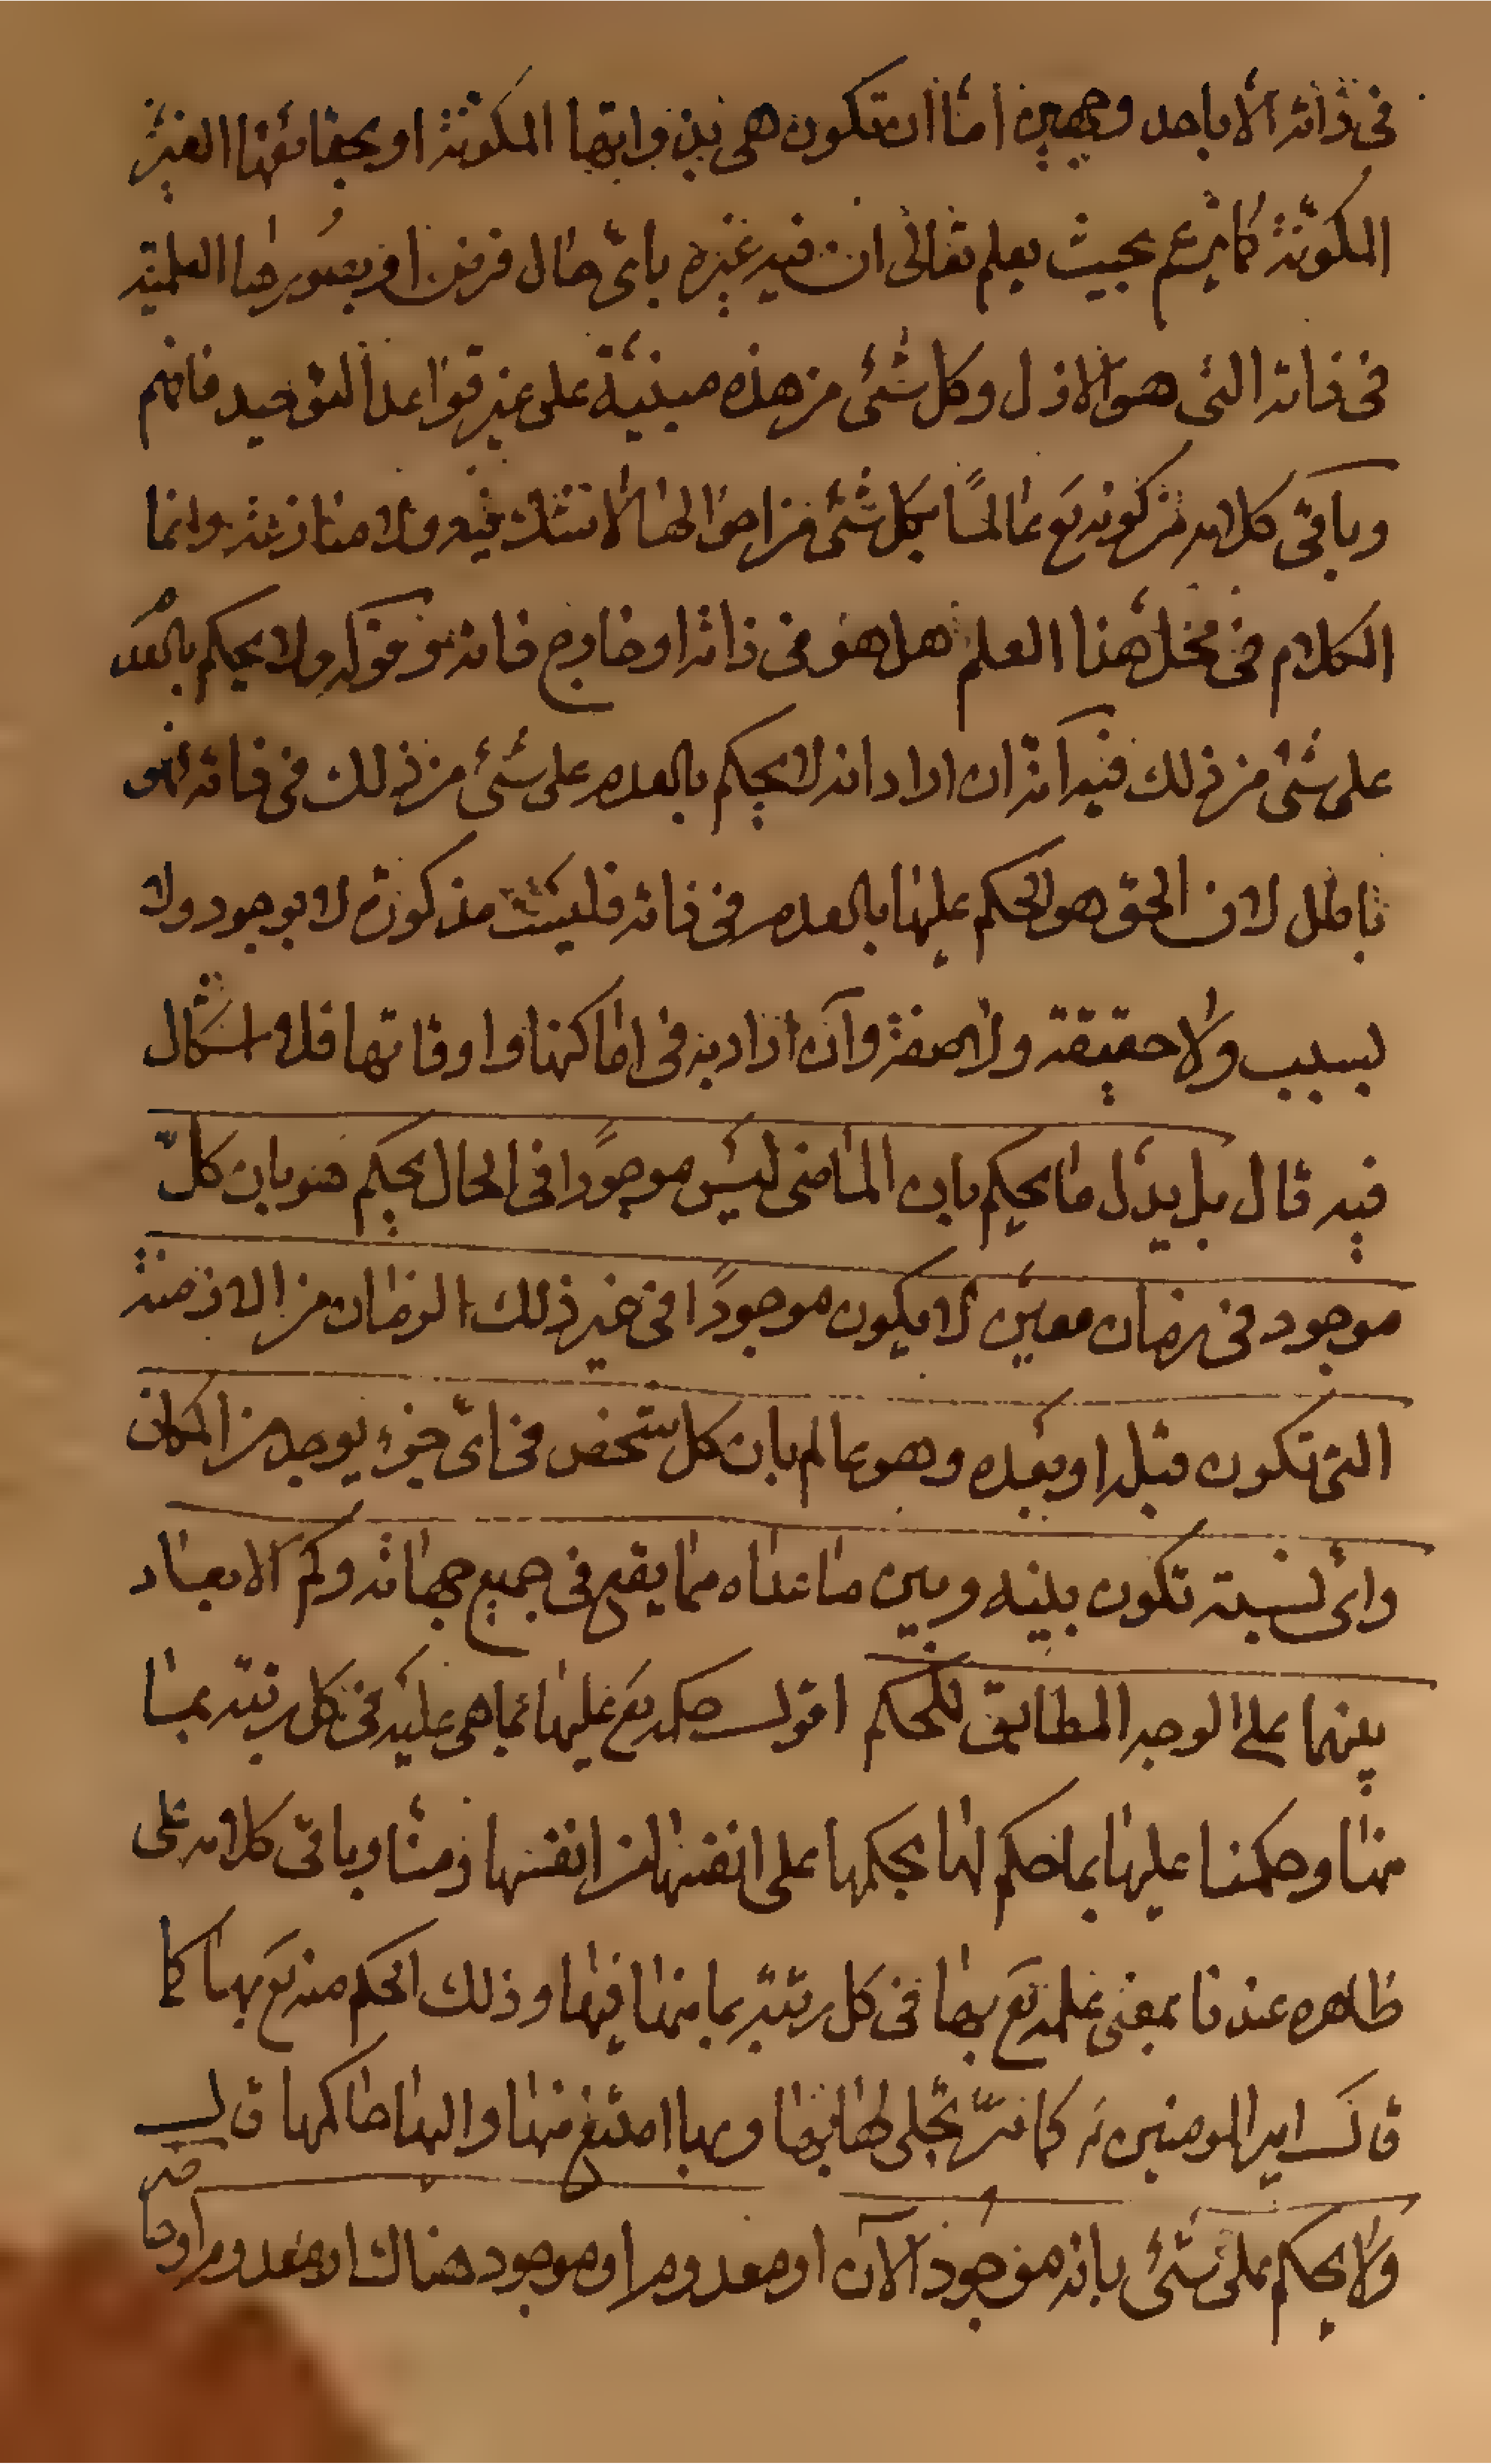 في ذاته الا باحد وجهين امّا ان تكون هي بذواتها المكونة او بحقائقها الغير
المكوّنة كما يزعم بحيث يعلم تعالى ان فيه غيره باىّ حال فرض او بصورها العلمية
في ذاته التي هو الازل وكل شئ من هذه مبنيّة على غير قواعد التوحيد فافهم
وباقي كلامه من كونه تع عالمًا بكل شئ من احوالها لا نشك فيه ولا منازعة وانما
الكلام في محل هذا العلم هل هو في ذاته او خارج ذاته وقوله ولا يحكم بالعدم
على شئ من ذلك فيه انّه ان اراد انه لا يحكم بالعدم على شئ من ذلك في ذاته فهو
باطل لان الحق هو الحكم عليها بالعدم في ذاته فليست مذكورة لا بوجود ولا
بسبب ولا حقيقة ولا صفة وان اراد به في اماكنها واوقاتها فلا اشكال
فيه قال بل بدل ما يحكم بان الماضي ليس موجودًا في الحال يحكم هو بان كلّ
موجود في زمان معيّن لا يكون موجودًا في غير ذلك الزمان من الازمنة
التي تكون قبله او بعده وهو عالم بان كل شخص في اىّ جزء يوجد من المكان
واىّ نسبة تكون بينه وبين ما عداه مما يقع في جميع جهاته وكم الابعاد
بينهما على الوجه المطابق للحكم اقول حكمه تع عليها بما هي عليه في كل رتبة بما
منها وحكمنا عليها بما حكم لها بحكمها على انفسها من انفسها ومنا وباقي كلامه على
ظاهره عندنا بمعنى علمه تع بها في كل رتبة بما منها فيها وذلك الحكم منه تع بها كما
قال امير المومنين ع كما مرّ تجلى لها بها وبها امتنع منها واليها حاكمها قال
ولا يحكم على شئ بانه موجود الآن او معدوم او موجود هناك او معدوم او حاضر